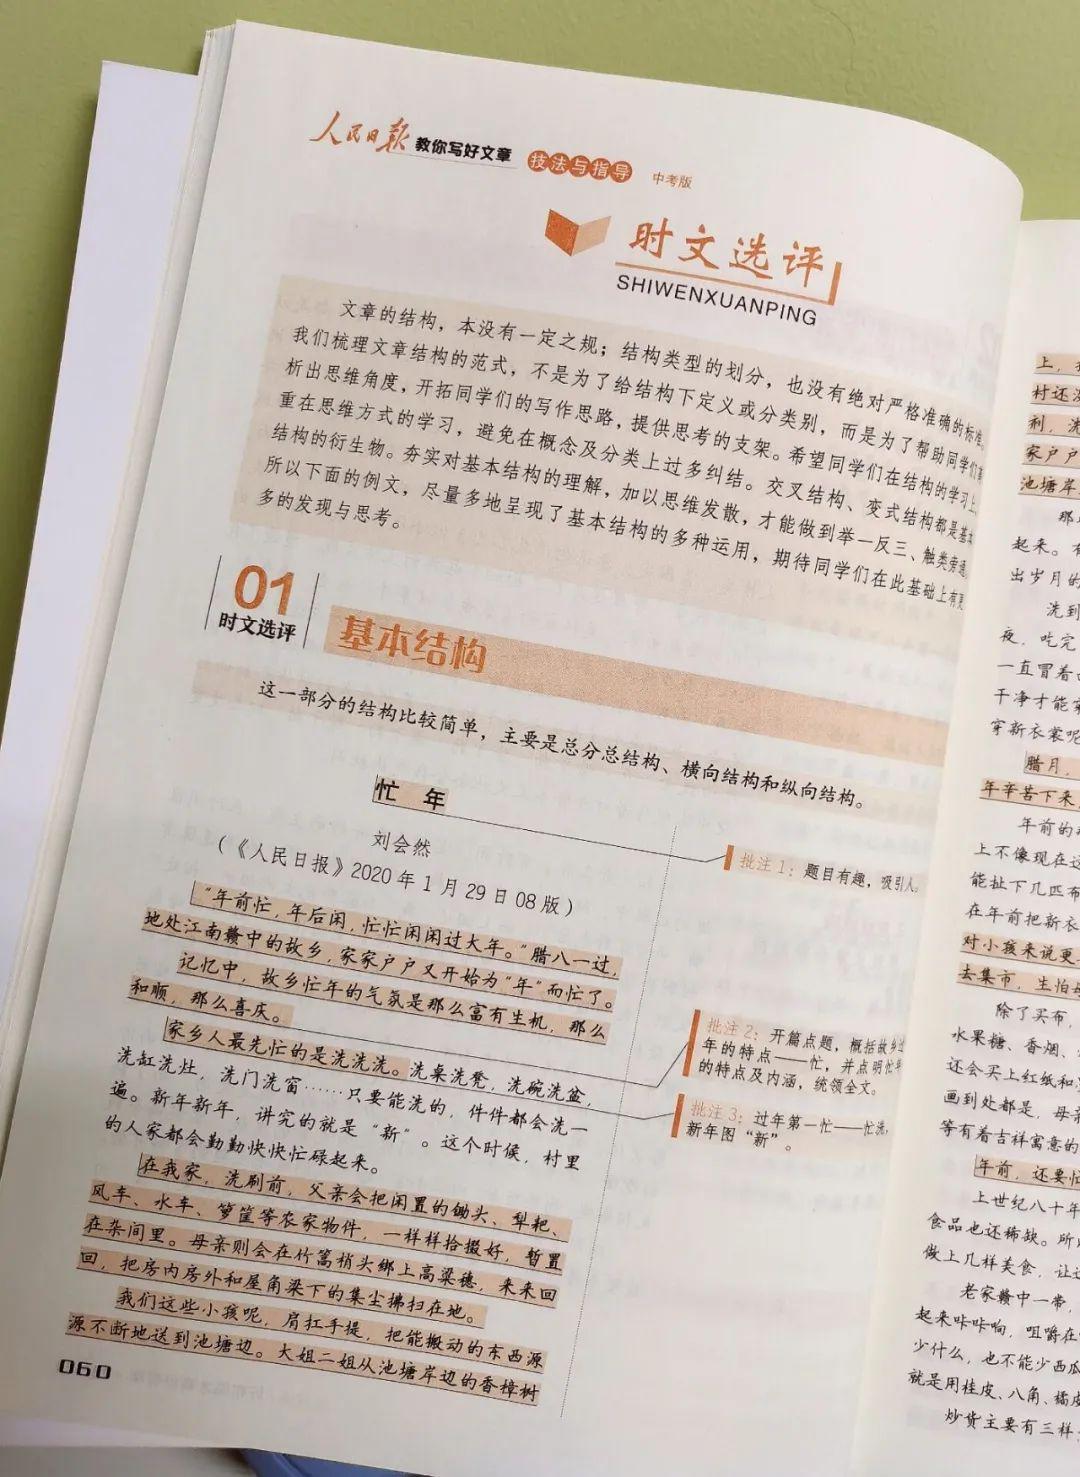 人民日报 教你写好文章 技法与指导 中考版
时文选评
SHIWENXUANPING
文章的结构，本没有一定之规；结构类型的划分，也没有绝对严格准确的标准。
我们梳理文章结构的范式，不是为了给结构下定义或分类别，而是为了帮助同学们
析出思维角度，开拓同学们的写作思路，提供思考的支架。希望同学们在结构的学习上，
重在思维方式的学习，避免在概念及分类上过多纠结。交叉结构、变式结构都是基本
结构的衍生物。夯实对基本结构的理解，加以思维发散，才能做到举一反三、触类旁通。
所以下面的例文，尽量多地呈现了基本结构的多种运用，期待同学们在此基础上有更
多的发现与思考。
01
时文选评
基本结构
这一部分的结构比较简单，主要是总分总结构、横向结构和纵向结构。
忙 年
刘会然
（《人民日报》2020年1月29日08版）
“年前忙，年后闲，忙忙闲闲过大年。”腊八一过，
地处江南赣中的故乡，家家户户又开始为“年”而忙了。
记忆中，故乡忙年的气氛是那么富有生机，那么
和顺，那么喜庆。
家乡人最先忙的是洗洗洗。洗桌洗凳，洗碗洗盆，
洗缸洗灶，洗门洗窗……只要能洗的，件件都会洗一
遍。新年新年，讲究的就是“新”。这个时候，村里
的人家都会勤勤快快忙碌起来。
在我家，洗刷前，父亲会把闲置的锄头、犁耙、
风车、水车、箩筐等农家物件，一样样拾掇好，暂置
在杂间里。母亲则会在竹篙梢头绑上高粱穗，来来回
回，把房内房外和屋角梁下的集尘拂扫在地。
我们这些小孩呢，肩扛手提，把能搬动的东西源
源不断地送到池塘边。大姐二姐从池塘岸边的香樟树
060
批注1：题目有趣，吸引人。
批注2：开篇点题，概括故乡过
年的特点——忙，并点明忙年
的特点及内涵，统领全文。
批注3：过年第一忙——忙洗，
新年图“新”。
上，
村还
利，洗
家户户
池塘岸
那
起来。
出岁月的
洗到
夜，吃完
一直冒着
干净才能
穿新衣裳呢
腊月，
年辛苦下来
年前的
上不像现在这
能扯下几匹布
在年前把新衣
对小孩来说更
去集市，生怕
除了买布，
水果糖、香烟、
还会买上红纸和
画到处都是，母亲
等有着吉祥寓意的
年前，还要忙
上世纪八十年
食品也还稀缺。所
做上几样美食，让
老家赣中一带，
起来咔咔响，咀嚼在
少什么，也不能少西瓜
就是用桂皮、八角、橘皮
炒货主要有三样